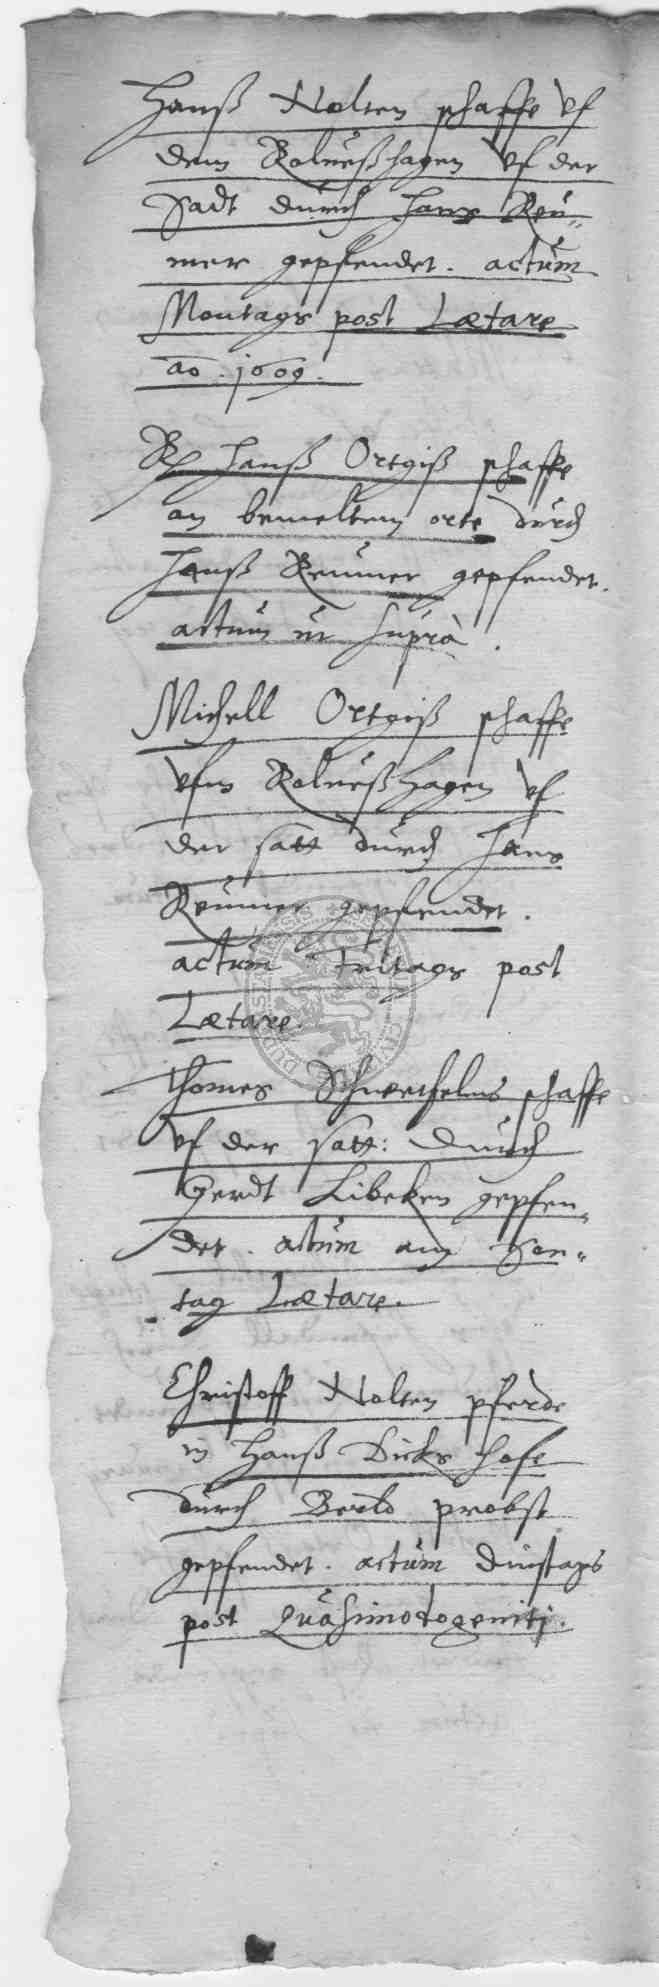 Hanß Nolten schaffe vf
dem Rolueßhagen vf der
Sadt durch Hans Reu-
mer gepfendet. actum
Montags post Lætare
ao. 1609.
Hanß Ortgiß schaffe
an bemeltem orte durch
Hanß Reumer gepfendet.
actum ut suprà.
Michell Ortgiß schaffe
vfm Rolueßhagen vf
der satt durch Hans
Reumer gepfendet.
actum Freitags post
Lætare.
Thomas schaffe
vf der satt: durch
Gerdt Libeken gepfen-
det. actum am Son-
tag Lætare.
Christoff Nolten pferde
in Hanß Dirks hofe
durch probst
gepfendet. actum Dinstags
post Quasimodogeniti.